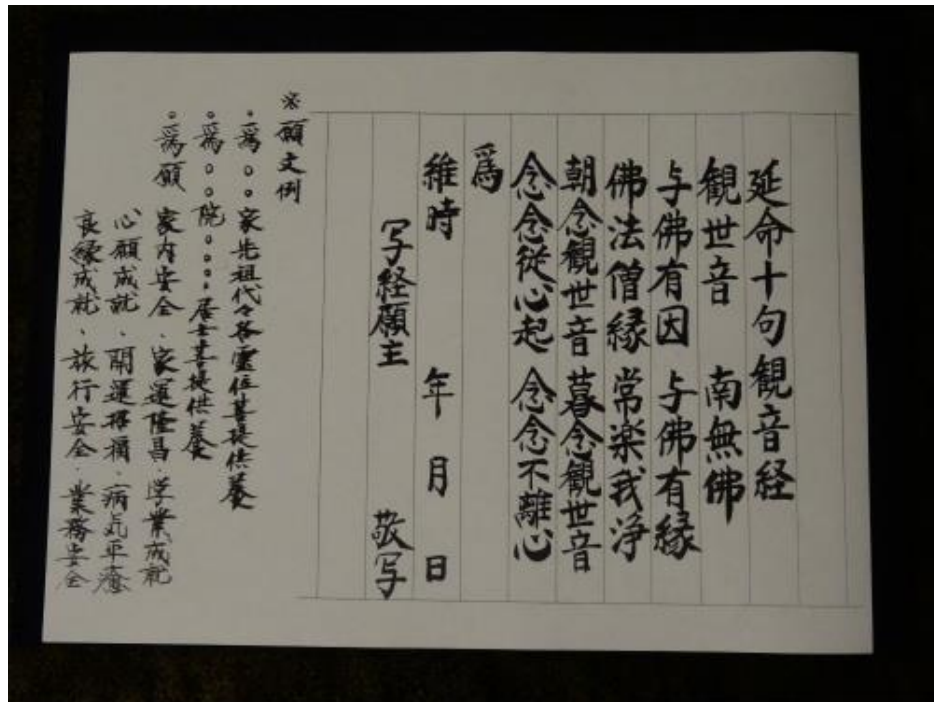 延命十句観音経
観世音 南無佛
与佛有因 与佛有縁
佛法僧縁 常楽我浄
朝念観世音 暮念観世音
念念従心起 念念不離心
為
維時 年 月 日
写経願主 敬写
※願文例
・為○○家先祖代々各霊位菩提供養
・為○○院○○○○居士菩提供養
・為願 家内安全、家運隆昌・学業成就
心願成就、開運招福・病気平癒
良縁成就、旅行安全・業務安全